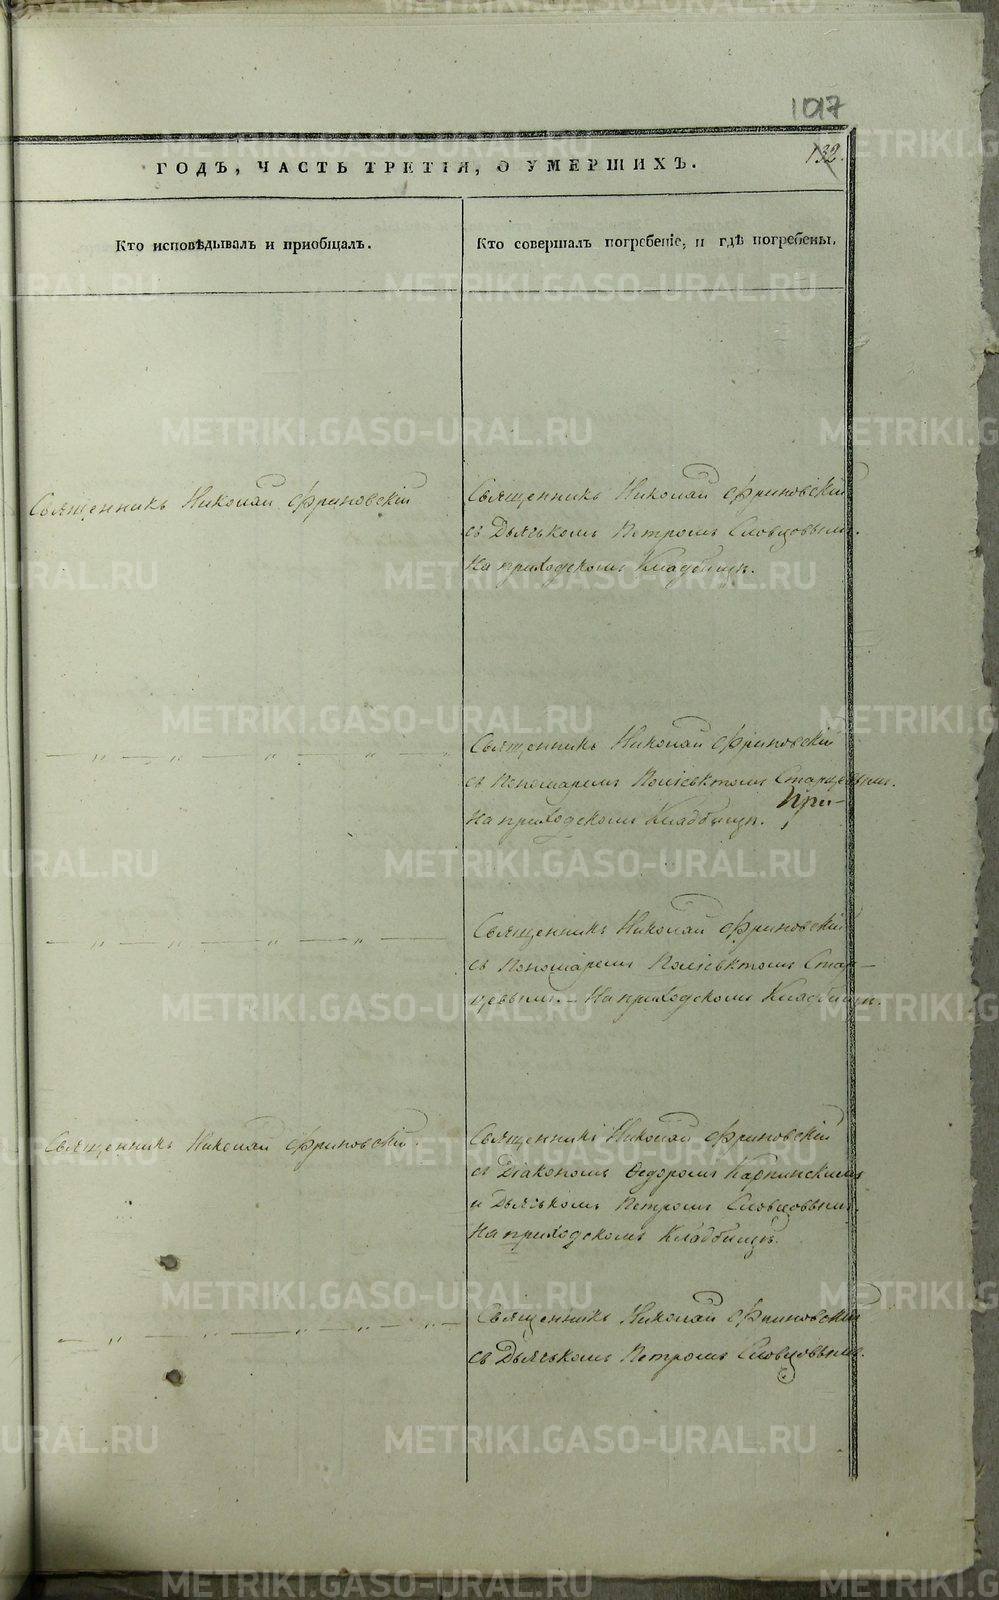 1017
132.
ГОДЪ, ЧАСТЬ ТРЕТІЯ, О УМЕРШИХЪ.
Кто исповѣдывалъ и приобщалъ.
Кто совершалъ погребеніе, и гдѣ погребены.
Священникъ Николай Фриновскій
Священникъ Николай Фриновскій
съ Дьячькомъ Петромъ Словцовымъ.
На приходскомъ Кладбищѣ.
— „ — „ — „ — „ —
Священникъ Николай Фриновскій
съ Пономаремъ Поліевктомъ Старцевымъ.
При-
На приходскомъ Кладбищѣ.
— „ — „ — „ —
Священникъ Николай Фриновскій
съ Пономаремъ Поліевктомъ Стар-
цевымъ. – На приходскомъ Кладбищѣ.
Священникъ Николай Фриновскій.
Священникъ Николай Фриновскій
съ Діакономъ Ѳедоромъ Карпинскимъ
и Дьячькомъ Петромъ Словцовымъ.
На приходскомъ Кладбищѣ.
— „ — „ — „ — „ —
Священникъ Николай Фриновскій
съ Дьячькомъ Петромъ Словцовымъ.
METRIKI.GASO-URAL.RU